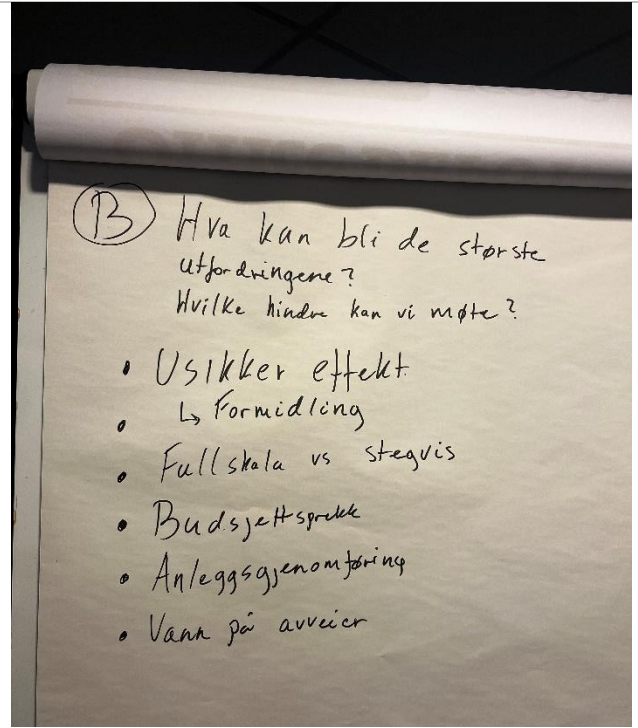 B Hva kan bli de største
utfordringene?
Hvilke hindre kan vi møte?
• Usikker effekt
• ↳ Formidling
• Fullskala vs stegvis
• Budsjettsprekk
• Anleggsgjenomføring
• Vann på avveier